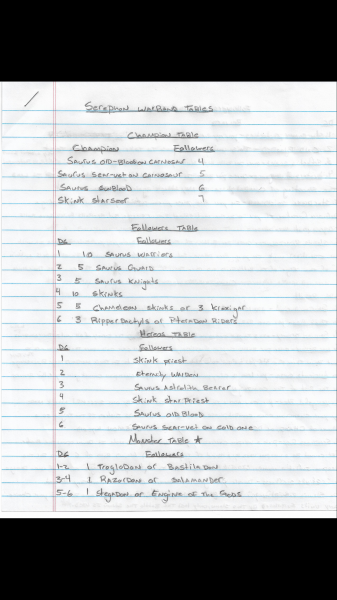 Seraphon Warband Tables
Champion Table
Champion Followers
Saurus Old-Blood on Carnosaur 4
Saurus Scar-vet on Carnosaur 5
Saurus Sunblood 6
Skink Starseer 7
Followers Table
D6 Followers
1 10 Saurus Warriors
2 5 Saurus Guard
3 5 Saurus Knights
4 10 Skinks
5 5 Chameleon Skinks or 3 Kroxigor
6 3 Ripperdactyls or Pteradon Riders
Heroes Table
D6 Followers
1 Skink Priest
2 Eternity Warden
3 Saurus Astrolith Bearer
4 Skink Star Priest
5 Saurus Old Blood
6 Saurus Scar-vet on Cold One
Monster Table *
D6 Followers
1-2 1 Troglodon or Bastiladon
3-4 1 Razordon or Salamander
5-6 1 Stegadon or Engine of the Gods